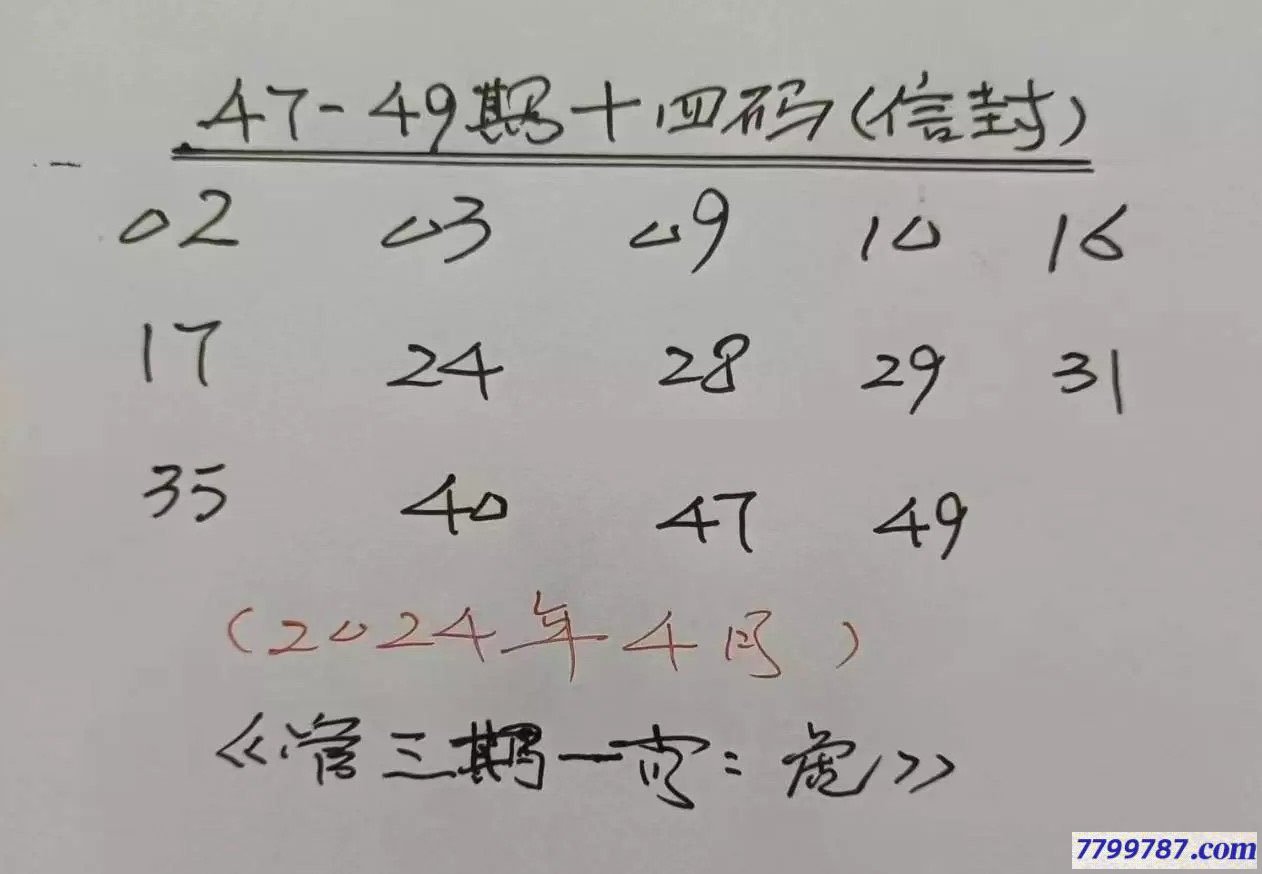 47-49期十四码(信封)
02 03 09 10 16
17 24 28 29 31
35 40 47 49
(2024年4月)
《管三期一肖:虎》
7799787.com